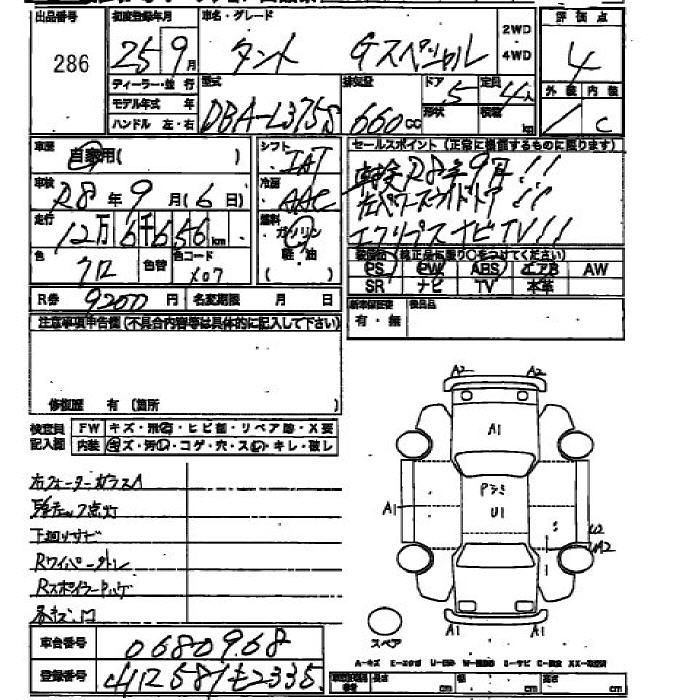 出品番号
286
初度登録年月
25年9月
車名・グレード
タント Gスペシャル
2WD
・
4WD
評価点
4
外装 内装
C
ディーラー・並行
モデル年式 年
ハンドル 左・右
型式
DBA-L375S
排気量
660cc
ドア
5
形状
定員
4人
積載
kg
車歴
自家用( )
車検
R8年9月(6日)
走行
12万6千656km
色
クロ
色替
色コード
X07
シフト
IAT
冷房
AAC
燃料
ガソリン
軽・油
R券 9200円
名変期限 月 日
セールスポイント(正常に機能するものに限ります)
車検R8年9月!!
左パワースライドドア!!
エクリプスナビTV!!
装備品(純正品に限り○をつけてください)
PS PW ABS エアB AW
SR ナビ TV 本革
新車保証書
有・無
後良品
注意事項申告欄(不具合内容等は具体的に記入して下さい)
修復歴 有(箇所
検査員
記入欄
FW キズ・飛石・ヒビ割・リペア跡・X要
内装 キズ・汚レ・コゲ・穴・スレ・キレ・破レ
右クォーターガラスA
下廻りサビ
Rワイパー欠トレ
各キズ凹
車台番号
0680968
登録番号
A2 A2
A1
Pシミ
U1
A1
W2
A1 A1
スペア
長さ cm 幅 cm 高さ cm